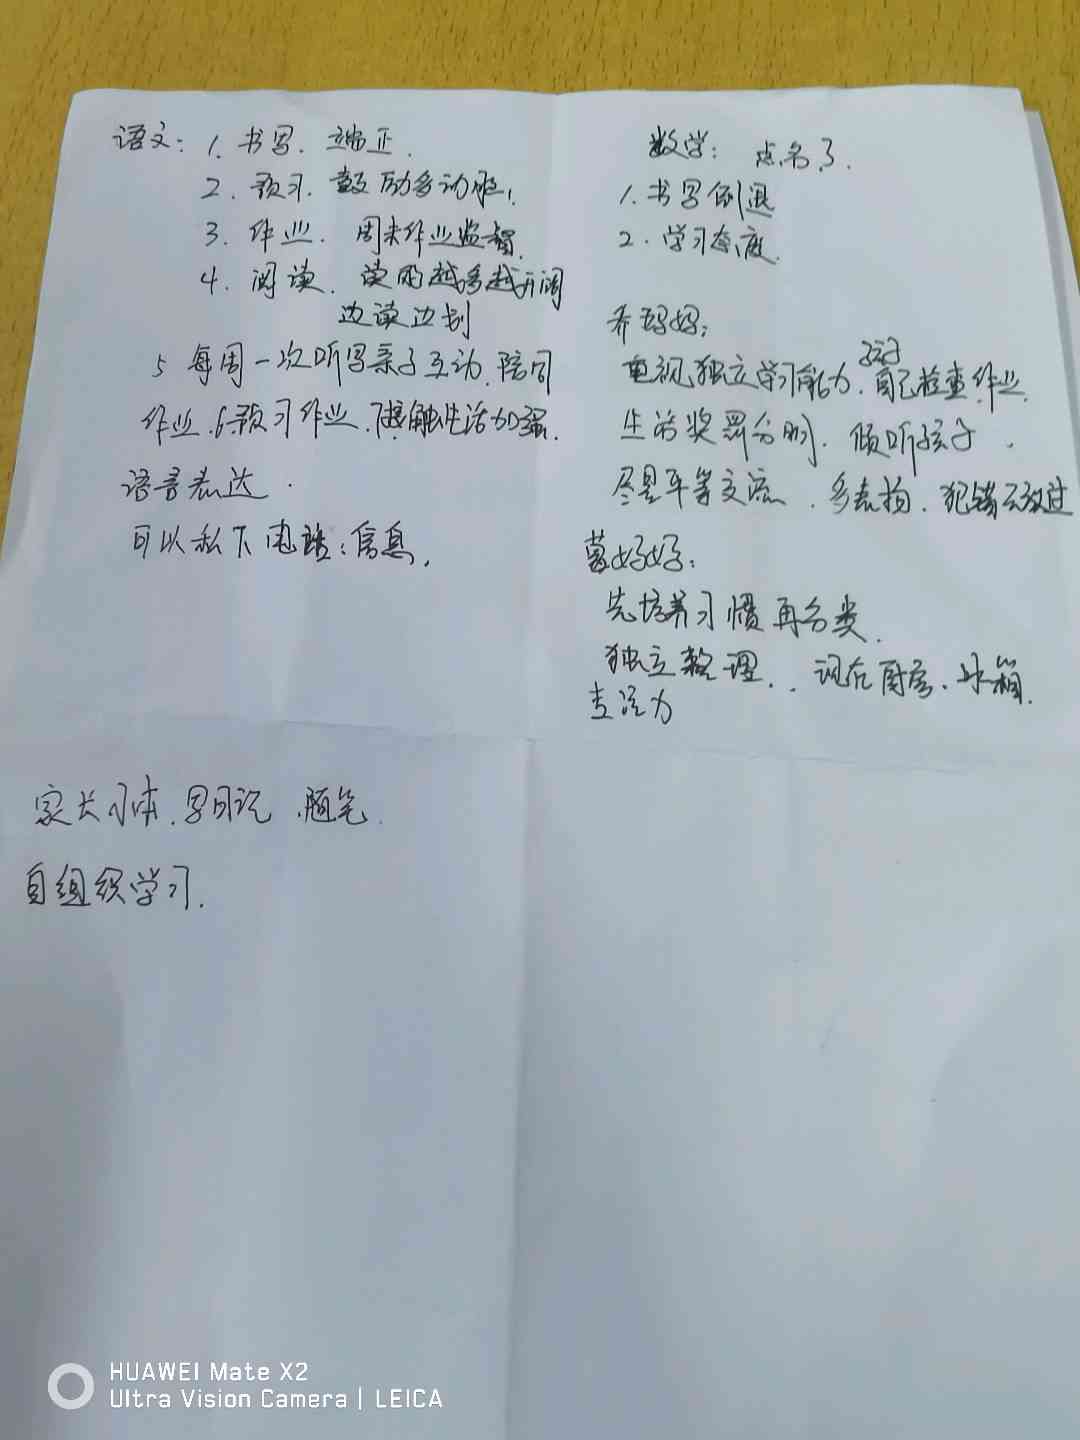 语文：1. 书写．端正．
2. 预习．鼓励多动脑，
3. 作业．周末作业监督．
4. 阅读．读的越多越开阔
边读边划
5 每周一次听写亲子互动．陪同
作业．6.预习作业．7接触生活加强．
语言表达．
可以私下电话：信息．
数学：点名了．
1. 书写倒退
2. 学习态度．
乔妈妈：
重视独立学习能力．孩子自己检查作业．
生活奖罚分明．倾听孩子．
尽量平等交流．多表扬．犯错不放过
妈妈：
先培养习惯再分类．
独立整理．．厨房．冰箱．
专注力
家长．写日记．随笔．
自组织学习．
HUAWEI Mate X2
Ultra Vision Camera | LEICA